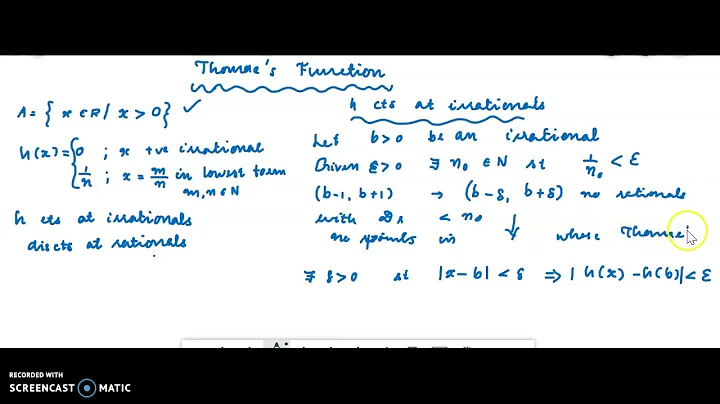 Thomae's Function
A = { x ∈ R / x > 0 } ✓
h(x) = { 0 ; x +ve irrational
1/n ; x = m/n in lowest term
m, n ∈ N
h cts at irrationals
discts at rationals
h cts at irrationals
Let b > 0 be an irrational
Given ε > 0 ∃ n₀ ∈ N st 1/n₀ < ε
(b-1, b+1) → (b-δ, b+δ) no rationals
with < n₀ ↓
no points in whose Thomae'
∃ δ > 0 st |x-b| < δ ⇒ |h(x) - h(b)| < ε
RECORDED WITH
SCREENCAST MATIC